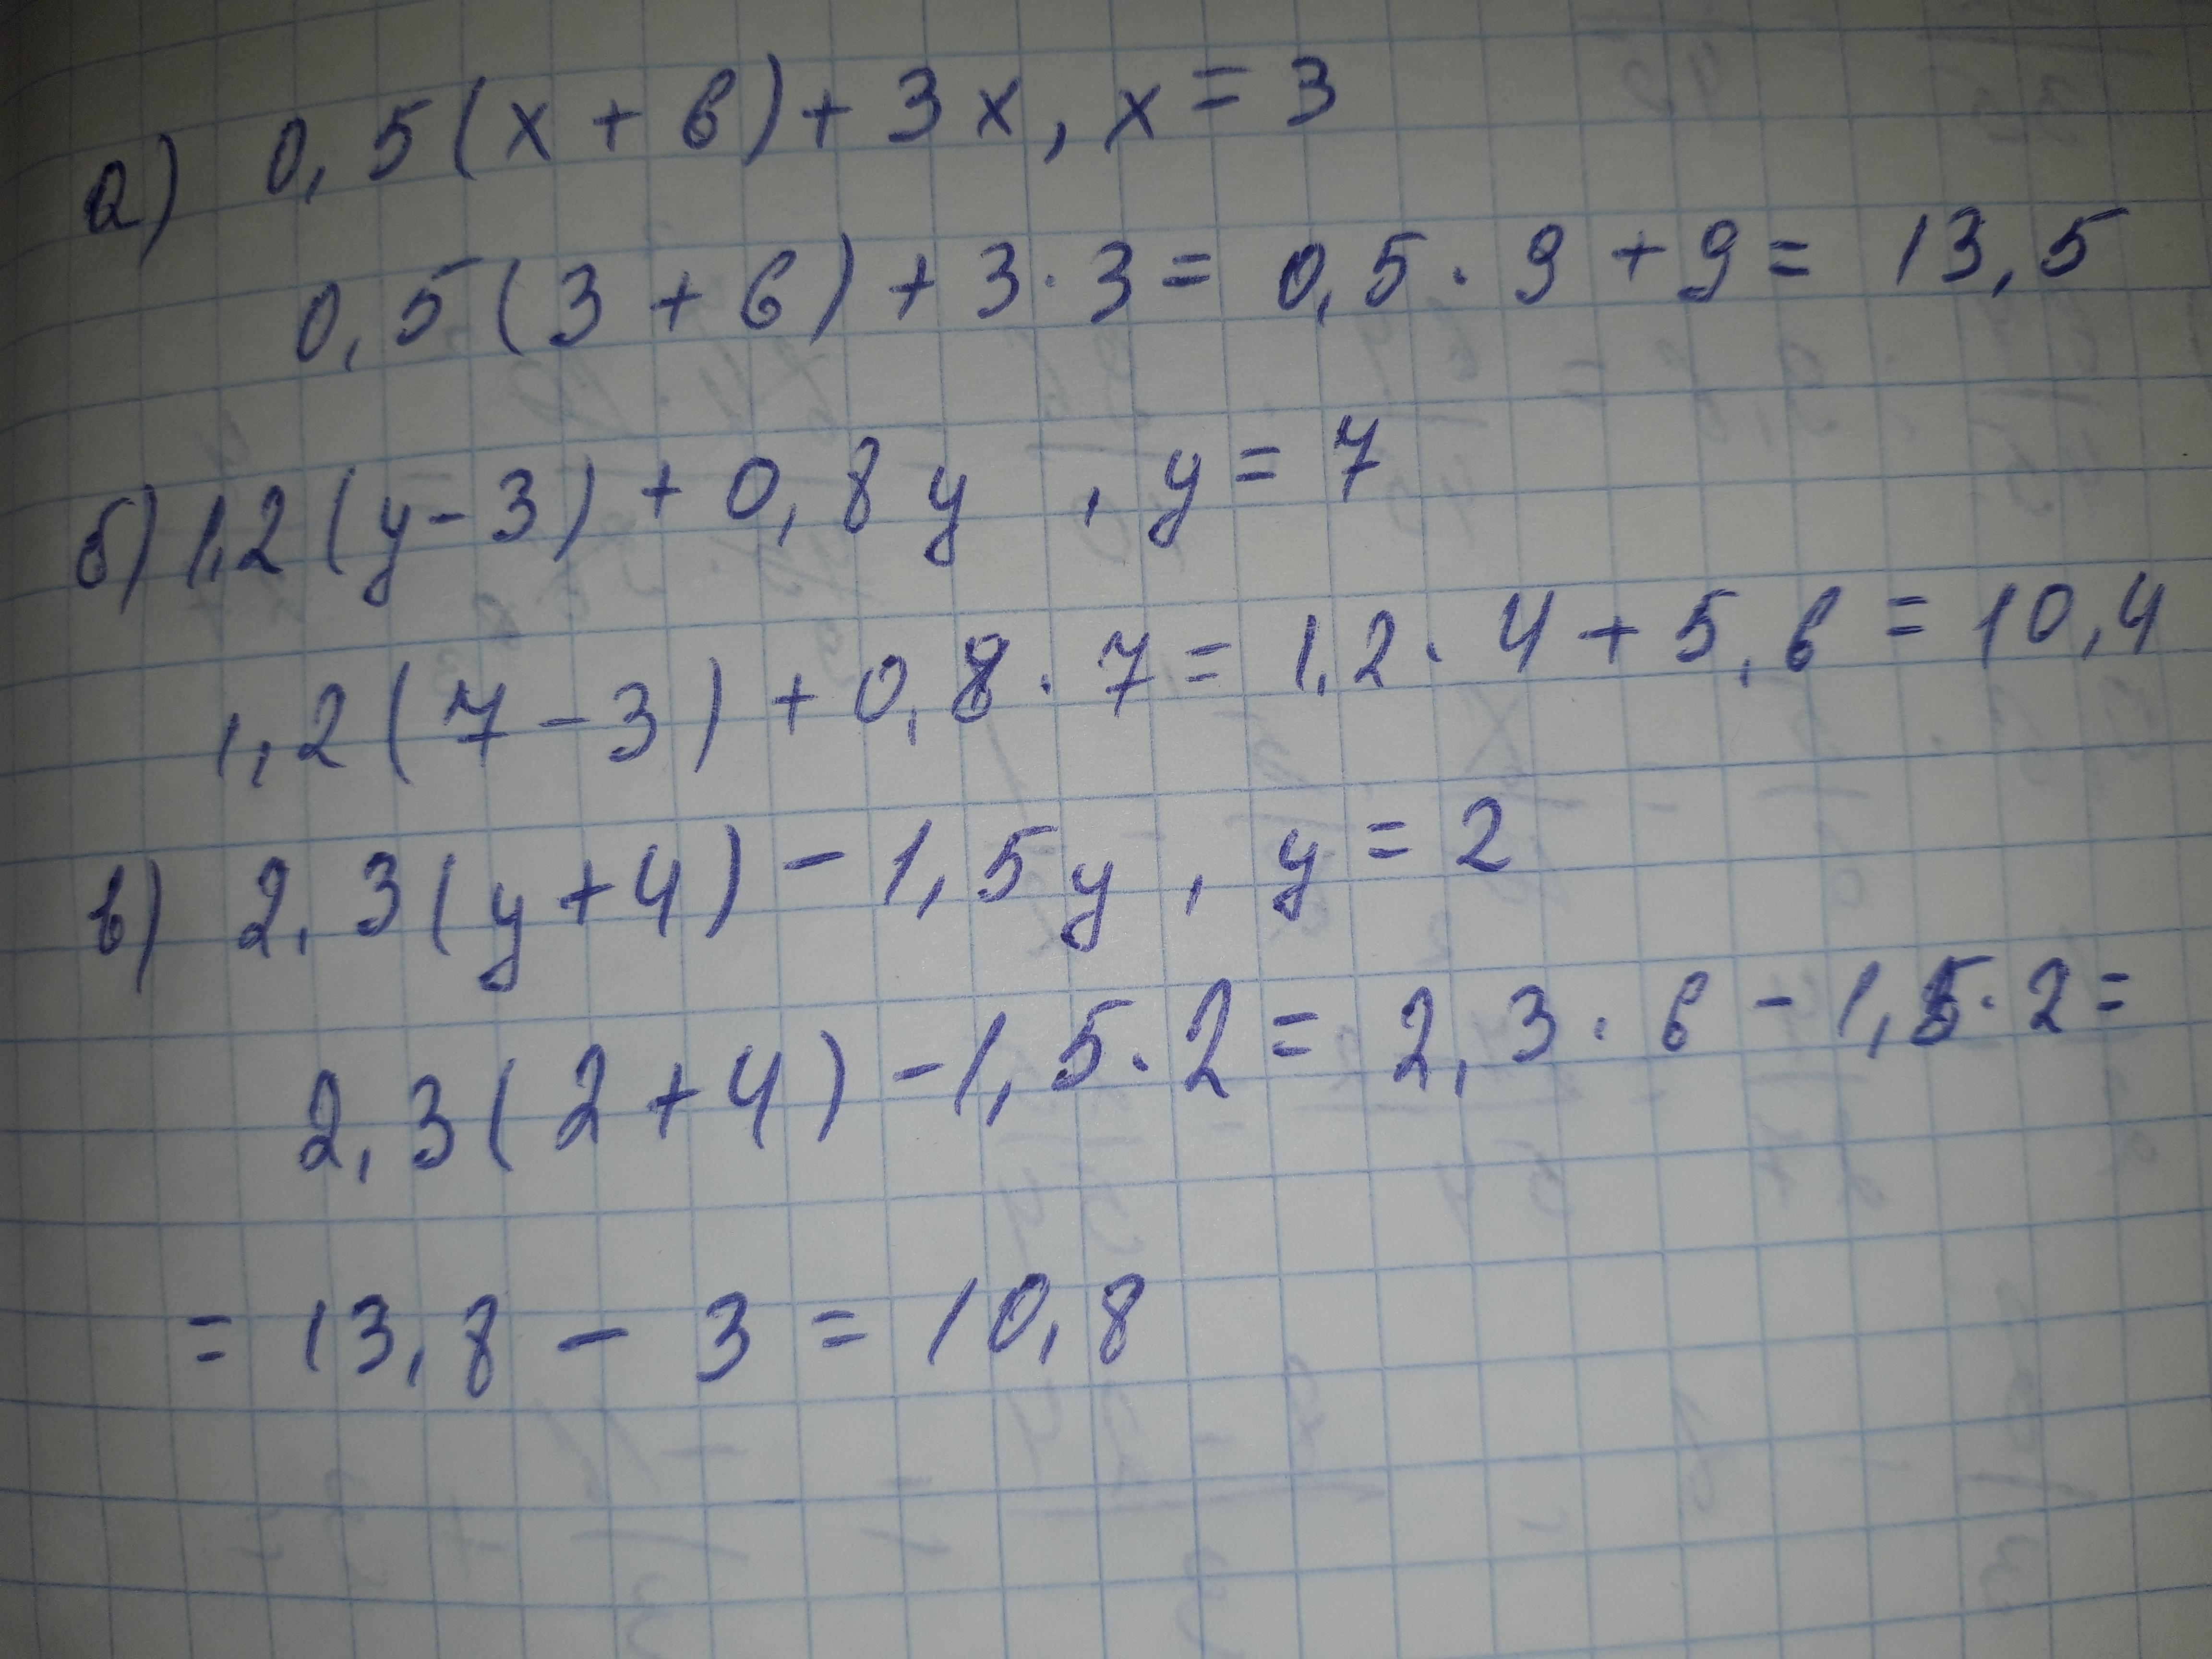 а) 0,5(x+6)+3x, x=3
0,5(3+6)+3·3=0,5·9+9=13,5
б) 1,2(y-3)+0,8y, y=7
1,2(7-3)+0,8·7=1,2·4+5,6=10,4
в) 2,3(y+4)-1,5y, y=2
2,3(2+4)-1,5·2=2,3·6-1,5·2=
=13,8-3=10,8